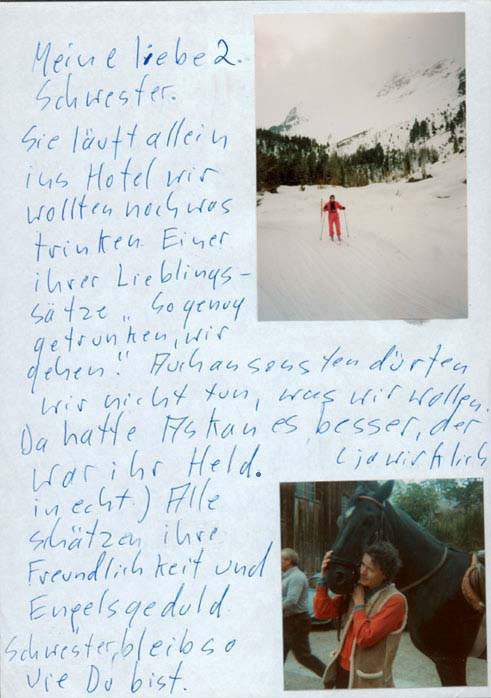 Meine liebe 2.
Schwester.
Sie läuft allein
ins Hotel wir
wollten noch was
trinken. Einer
ihrer Lieblings-
sätze „So genug
getrunken, wir
gehen." Auch ansonsten dürfen
wir nicht tun, was wir wollen.
Da hatte Askan es besser, der
war ihr Held. (ja wirklich
in echt) Alle
schätzen ihre
Freundlichkeit und
Engelsgeduld
Schwester, bleib so
wie Du bist.